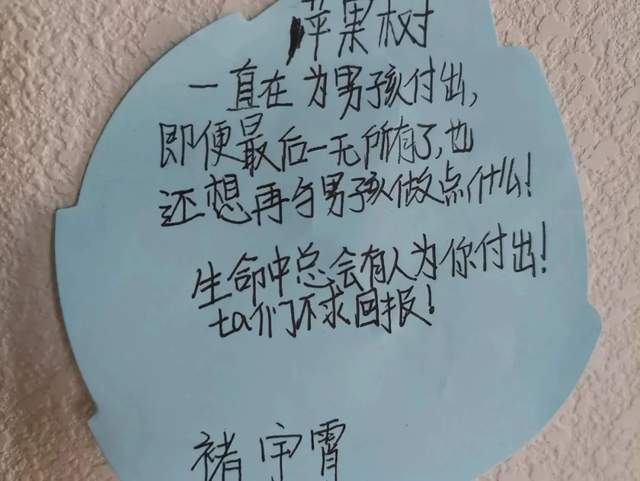 苹果树
一直在为男孩付出,
即便最后一无所有了,也
还想再与男孩做点什么!
生命中总会有人为你付出!
ta们不求回报!
褚宇霄